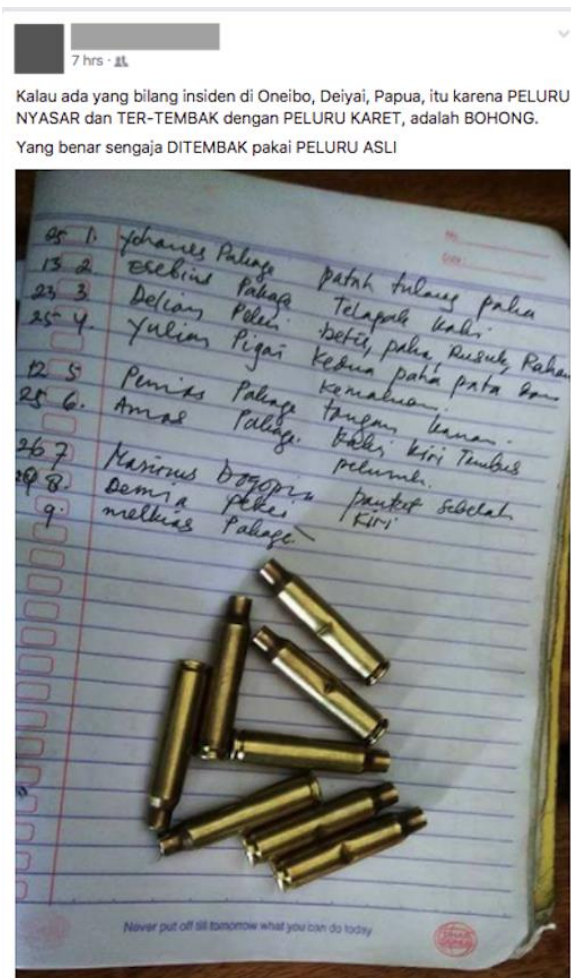 7 hrs ·
Kalau ada yang bilang insiden di Oneibo, Deiyai, Papua, itu karena PELURU
NYASAR dan TER-TEMBAK dengan PELURU KARET, adalah BOHONG.
Yang benar sengaja DITEMBAK pakai PELURU ASLI
No.
Date
25 1. Yohanes Pakage patah tulang paha
13 2 Esebius Pakage Telapak kaki
23 3 Delian Pekei betis, paha, Rusuk, Rahan
25 4. Yulian Pigai Kedua paha pata dan
kemaluan.
12 5 Penias Pakage tangan kanan.
25 6. Amos Pakage. kaki kiri Tembus
peluruh.
26 7 Marinus Dogopia pantat sebelah
8. Demia Pekei kiri
9. melkias Pakage
Never put off till tomorrow what you can do today